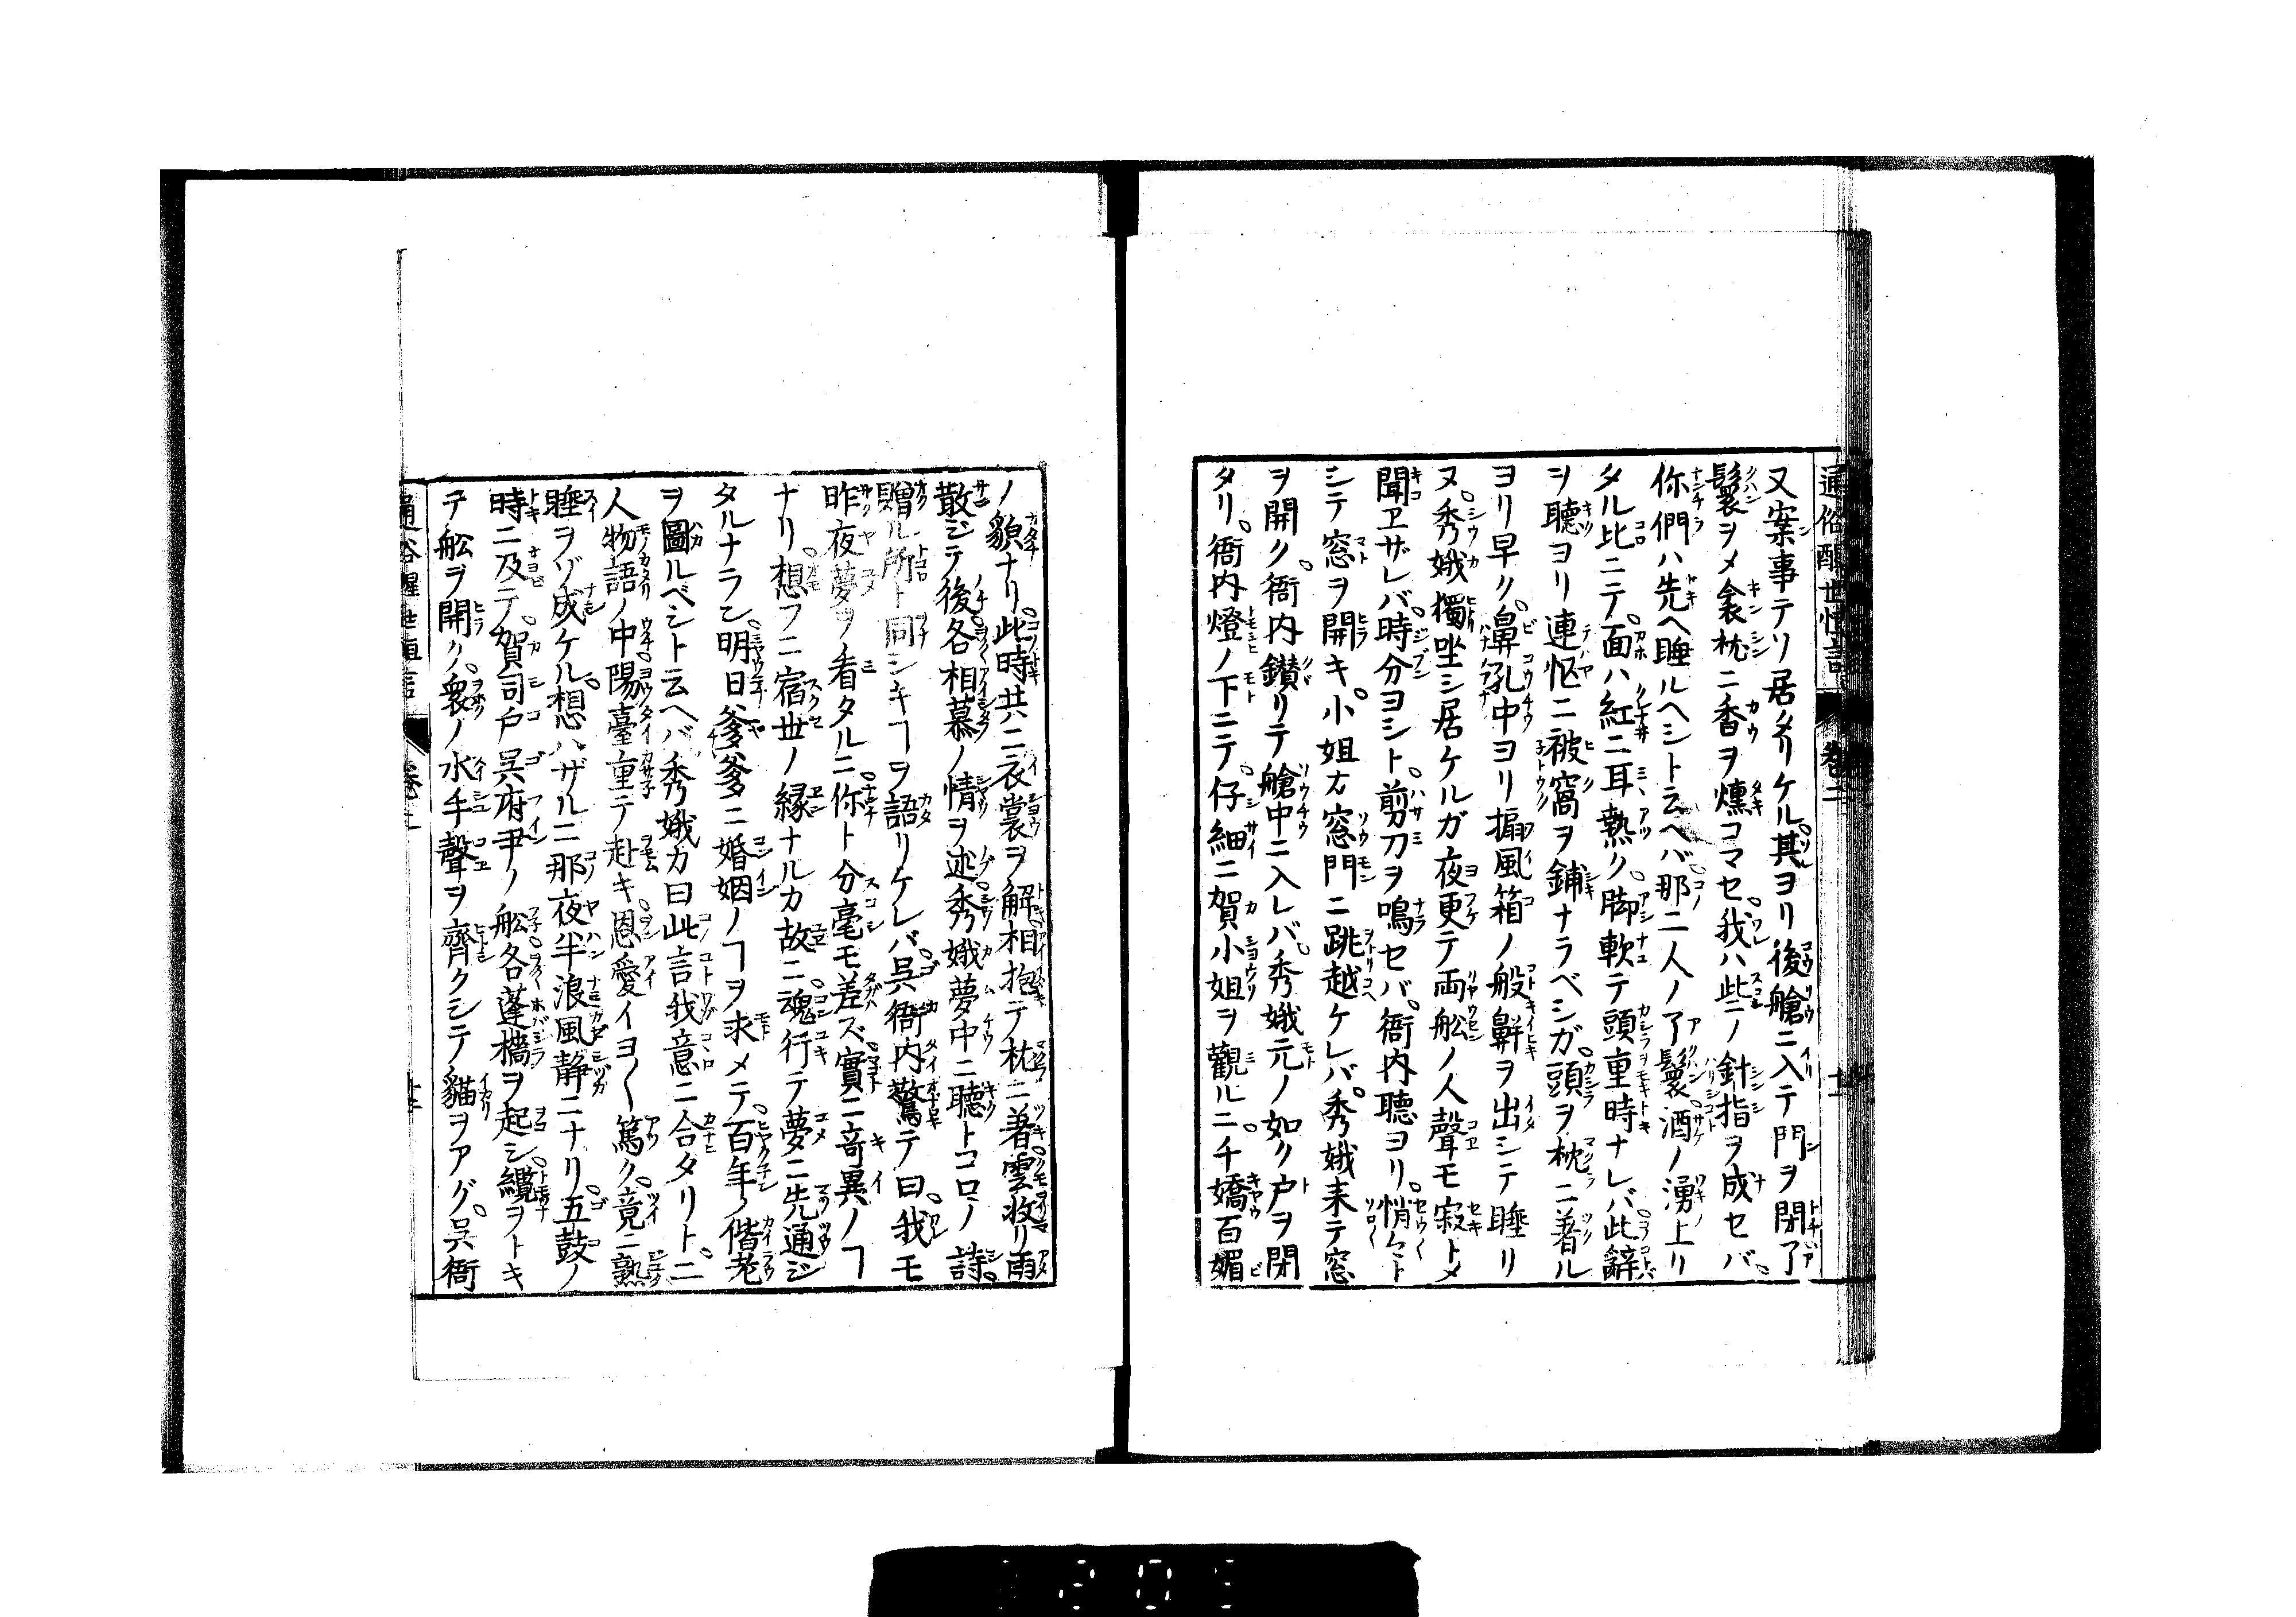 通俗醒世恒言 卷二 十二
又案事テリ居タリケル。其ヨリ後艙ニ入テ門ヲ閉了
鬟ヲメ衾枕ニ香ヲ燻コマセ我ハ此ノ針指ヲ成セバ。
你們ハ先ヘ睡ルヘシト云ヘバ那二人ノ了鬟。酒ノ湧上リ
タル比ニテ。面ハ紅ニ耳熱ク。脚軟テ頭重時ナレバ此辭
ヲ聽ヨリ連怄ニ被窩ヲ鋪ナラベシガ。頭ヲ枕ニ著ル
ヨリ早ク。鼻孔中ヨリ搧風箱ノ般鼾ヲ出シテ睡リ
ヌ。秀娥獨坐シ居ケルガ夜更テ両舩ノ人聲モ寂トメ
聞ヱザレバ時分ヨシト。剪刀ヲ鳴セバ。衙内聽ヨリ。悄々ト
シテ窓ヲ開キ。小姐方窓門ニ跳越ケレバ。秀娥来テ窓
ヲ開ク。衙内鑚リテ艙中ニ入レバ。秀娥元ノ如ク戸ヲ閉
タリ。衙内燈ノ下ニテ。仔細ニ賀小姐ヲ觀ルニ。千嬌百媚
ノ貌ナリ。此時共ニ衣裳ヲ解相抱テ枕ニ著雲收リ雨
散ジテ後各相慕ノ情ヲ述秀娥夢中ニ聽トコロノ詩。
贈ル所ト同シキヿヲ語リケレバ。呉衙内驚テ曰。我モ
昨夜夢ヲ看タルニ。你ト分毫モ差ズ實ニ竒異ノヿ
ナリ。想フニ宿世ノ縁ナルカ故ニ魂行テ夢ニ先通ジ
タルナラン。明日爹爹ニ婚姻ノヿヲ求メテ。百年ノ偕老
ヲ圖ルベシト云ヘバ秀娥カ曰此言我意ニ合タリト。二
人物語ノ中陽臺重テ赴キ。恩愛イヨ〱篤ク。竟ニ熟
睡ヲゾ成ケル。想ハザルニ那夜半浪風靜ニナリ。五鼓ノ
時ニ及テ。賀司戸呉府尹ノ舩各蓬檣ヲ起シ。纜ヲトキ
テ舩ヲ開ク。衆ノ水手聲ヲ齊クシテ。貓ヲアグ。呉衙
通俗醒世恒言 卷二